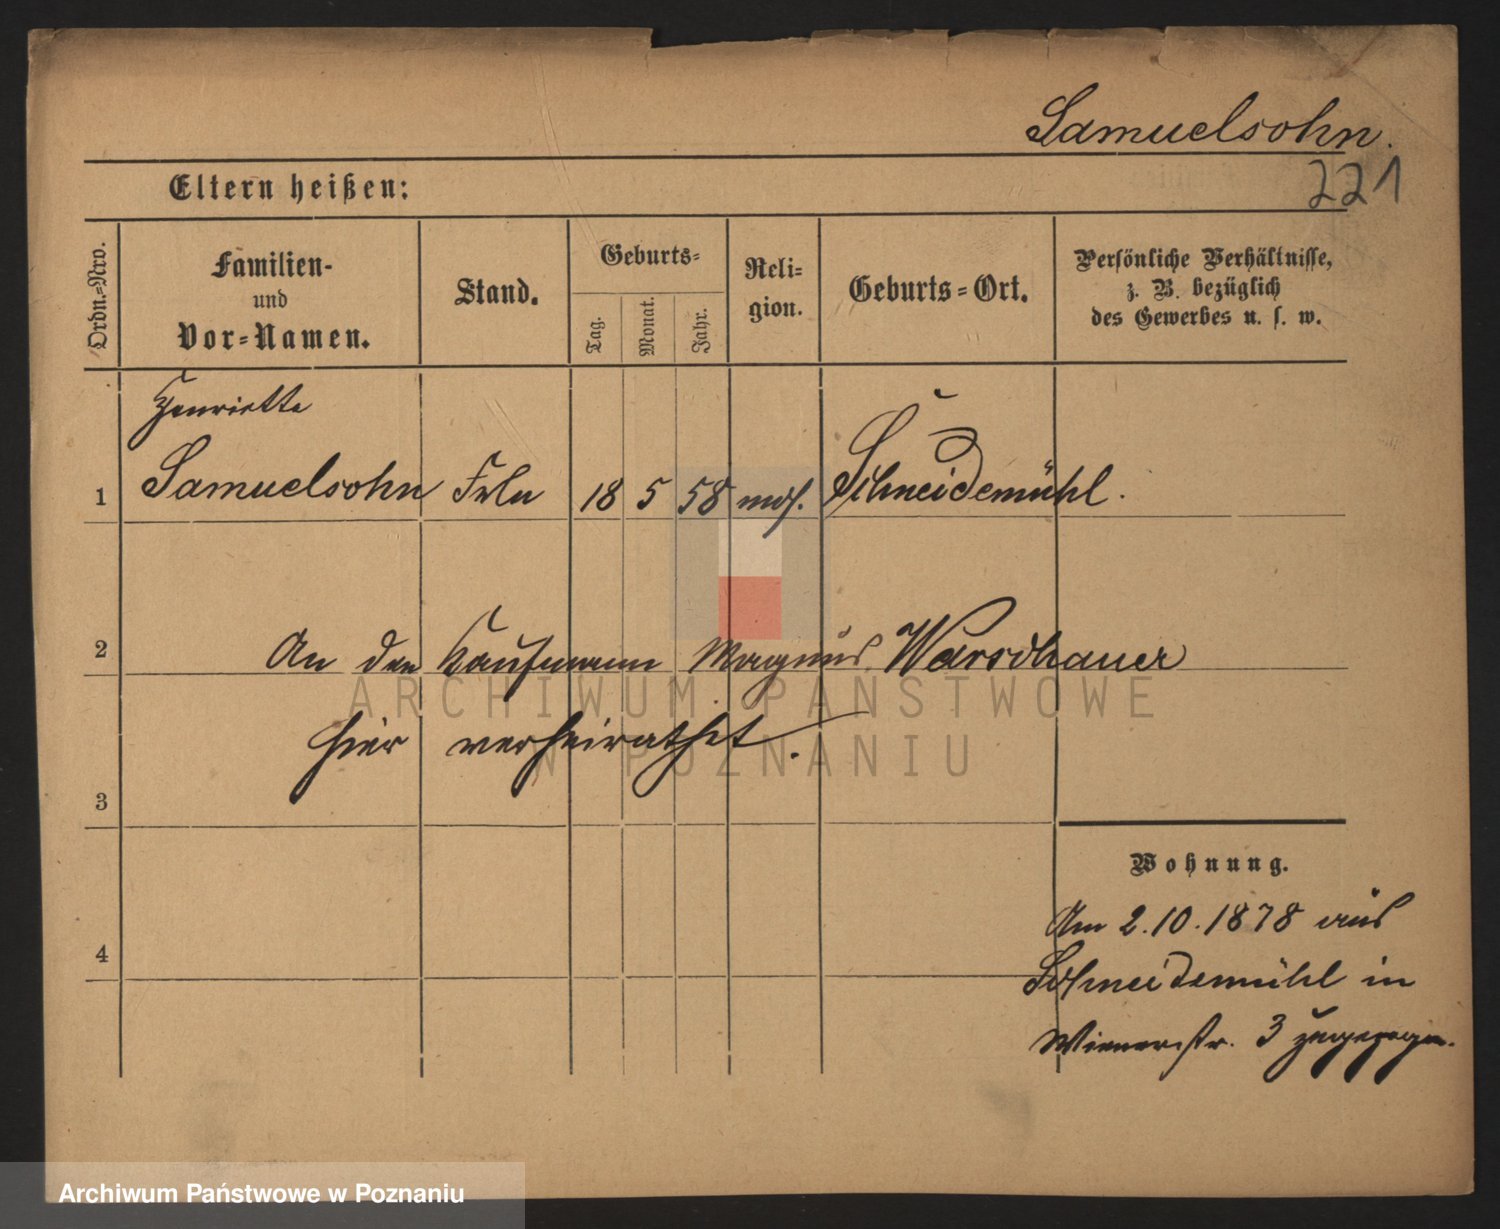 Samuelsohn.
221
Eltern heißen:
Ordn.=Nro.
Familien-
und
Vor=Namen.
Stand.
Geburts=
Tag.
Monat.
Jahr.
Reli=
gion.
Geburts=Ort.
Persönliche Verhältnisse,
z. B. bezüglich
des Gewerbes u. s. w.
Henriette
1 Samuelsohn Frln 18 5 58 mos. Schneidemühl.
2 An den Kaufmann Magnus Warschauer
hier verheirathet.
3
Wohnung.
4
Am 2.10.1878 aus
Schneidemühl in
Wienerstr. 3 zugezogen.
ARCHIWUM PAŃSTWOWE
W POZNANIU
Archiwum Państwowe w Poznaniu